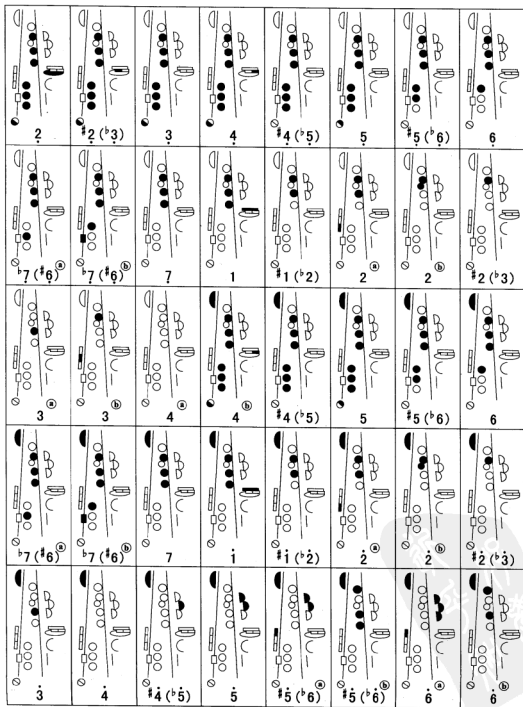 2̣ ♯2̣(♭3̣) 3̣ 4̣ ♯4̣(♭5̣) 5̣ ♯5̣(♭6̣) 6̣
♭7̣(♯6̣) ⓐ ♭7̣(♯6̣) ⓑ 7̣ 1 ♯1(♭2) 2 ⓐ 2 ⓑ ♯2(♭3)
3 ⓐ 3 ⓑ 4 ⓐ 4 ⓑ ♯4(♭5) 5 ♯5(♭6) 6
♭7(♯6) ⓐ ♭7(♯6) ⓑ 7 1̇ ♯1̇(♭2̇) 2̇ ⓐ 2̇ ⓑ ♯2̇(♭3̇)
3̇ 4̇ ♯4̇(♭5̇) 5̇ ♯5̇(♭6̇) ⓐ ♯5̇(♭6̇) ⓑ 6̇ ⓐ 6̇ ⓑ